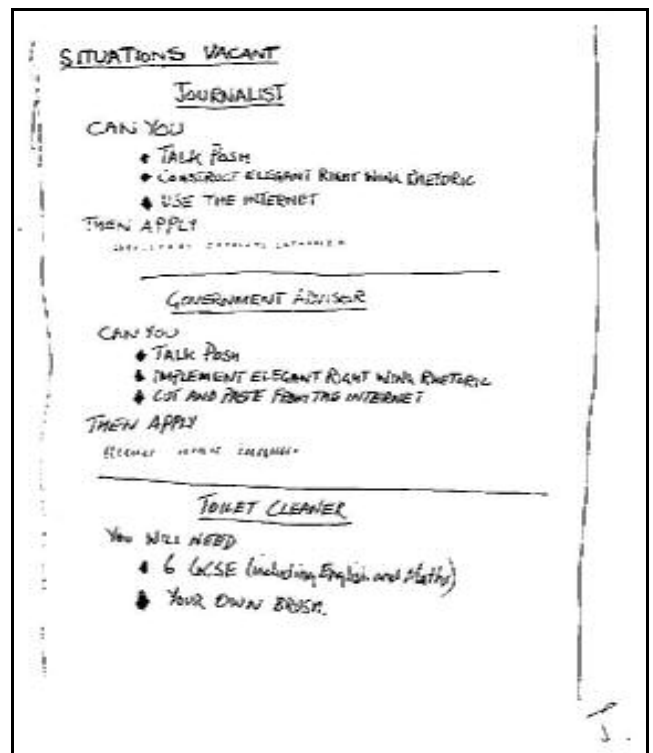 SITUATIONS VACANT
JOURNALIST
CAN YOU
TALK POSH
CONSTRUCT ELEGANT RIGHT WING RHETORIC
USE THE INTERNET
THEN APPLY
GOVERNMENT ADVISOR
CAN YOU
TALK POSH
IMPLEMENT ELEGANT RIGHT WING RHETORIC
CUT AND PASTE FROM THE INTERNET
THEN APPLY
TOILET CLEANER
YOU WILL NEED
6 GCSE (including English and Maths)
YOUR OWN BRUSH.